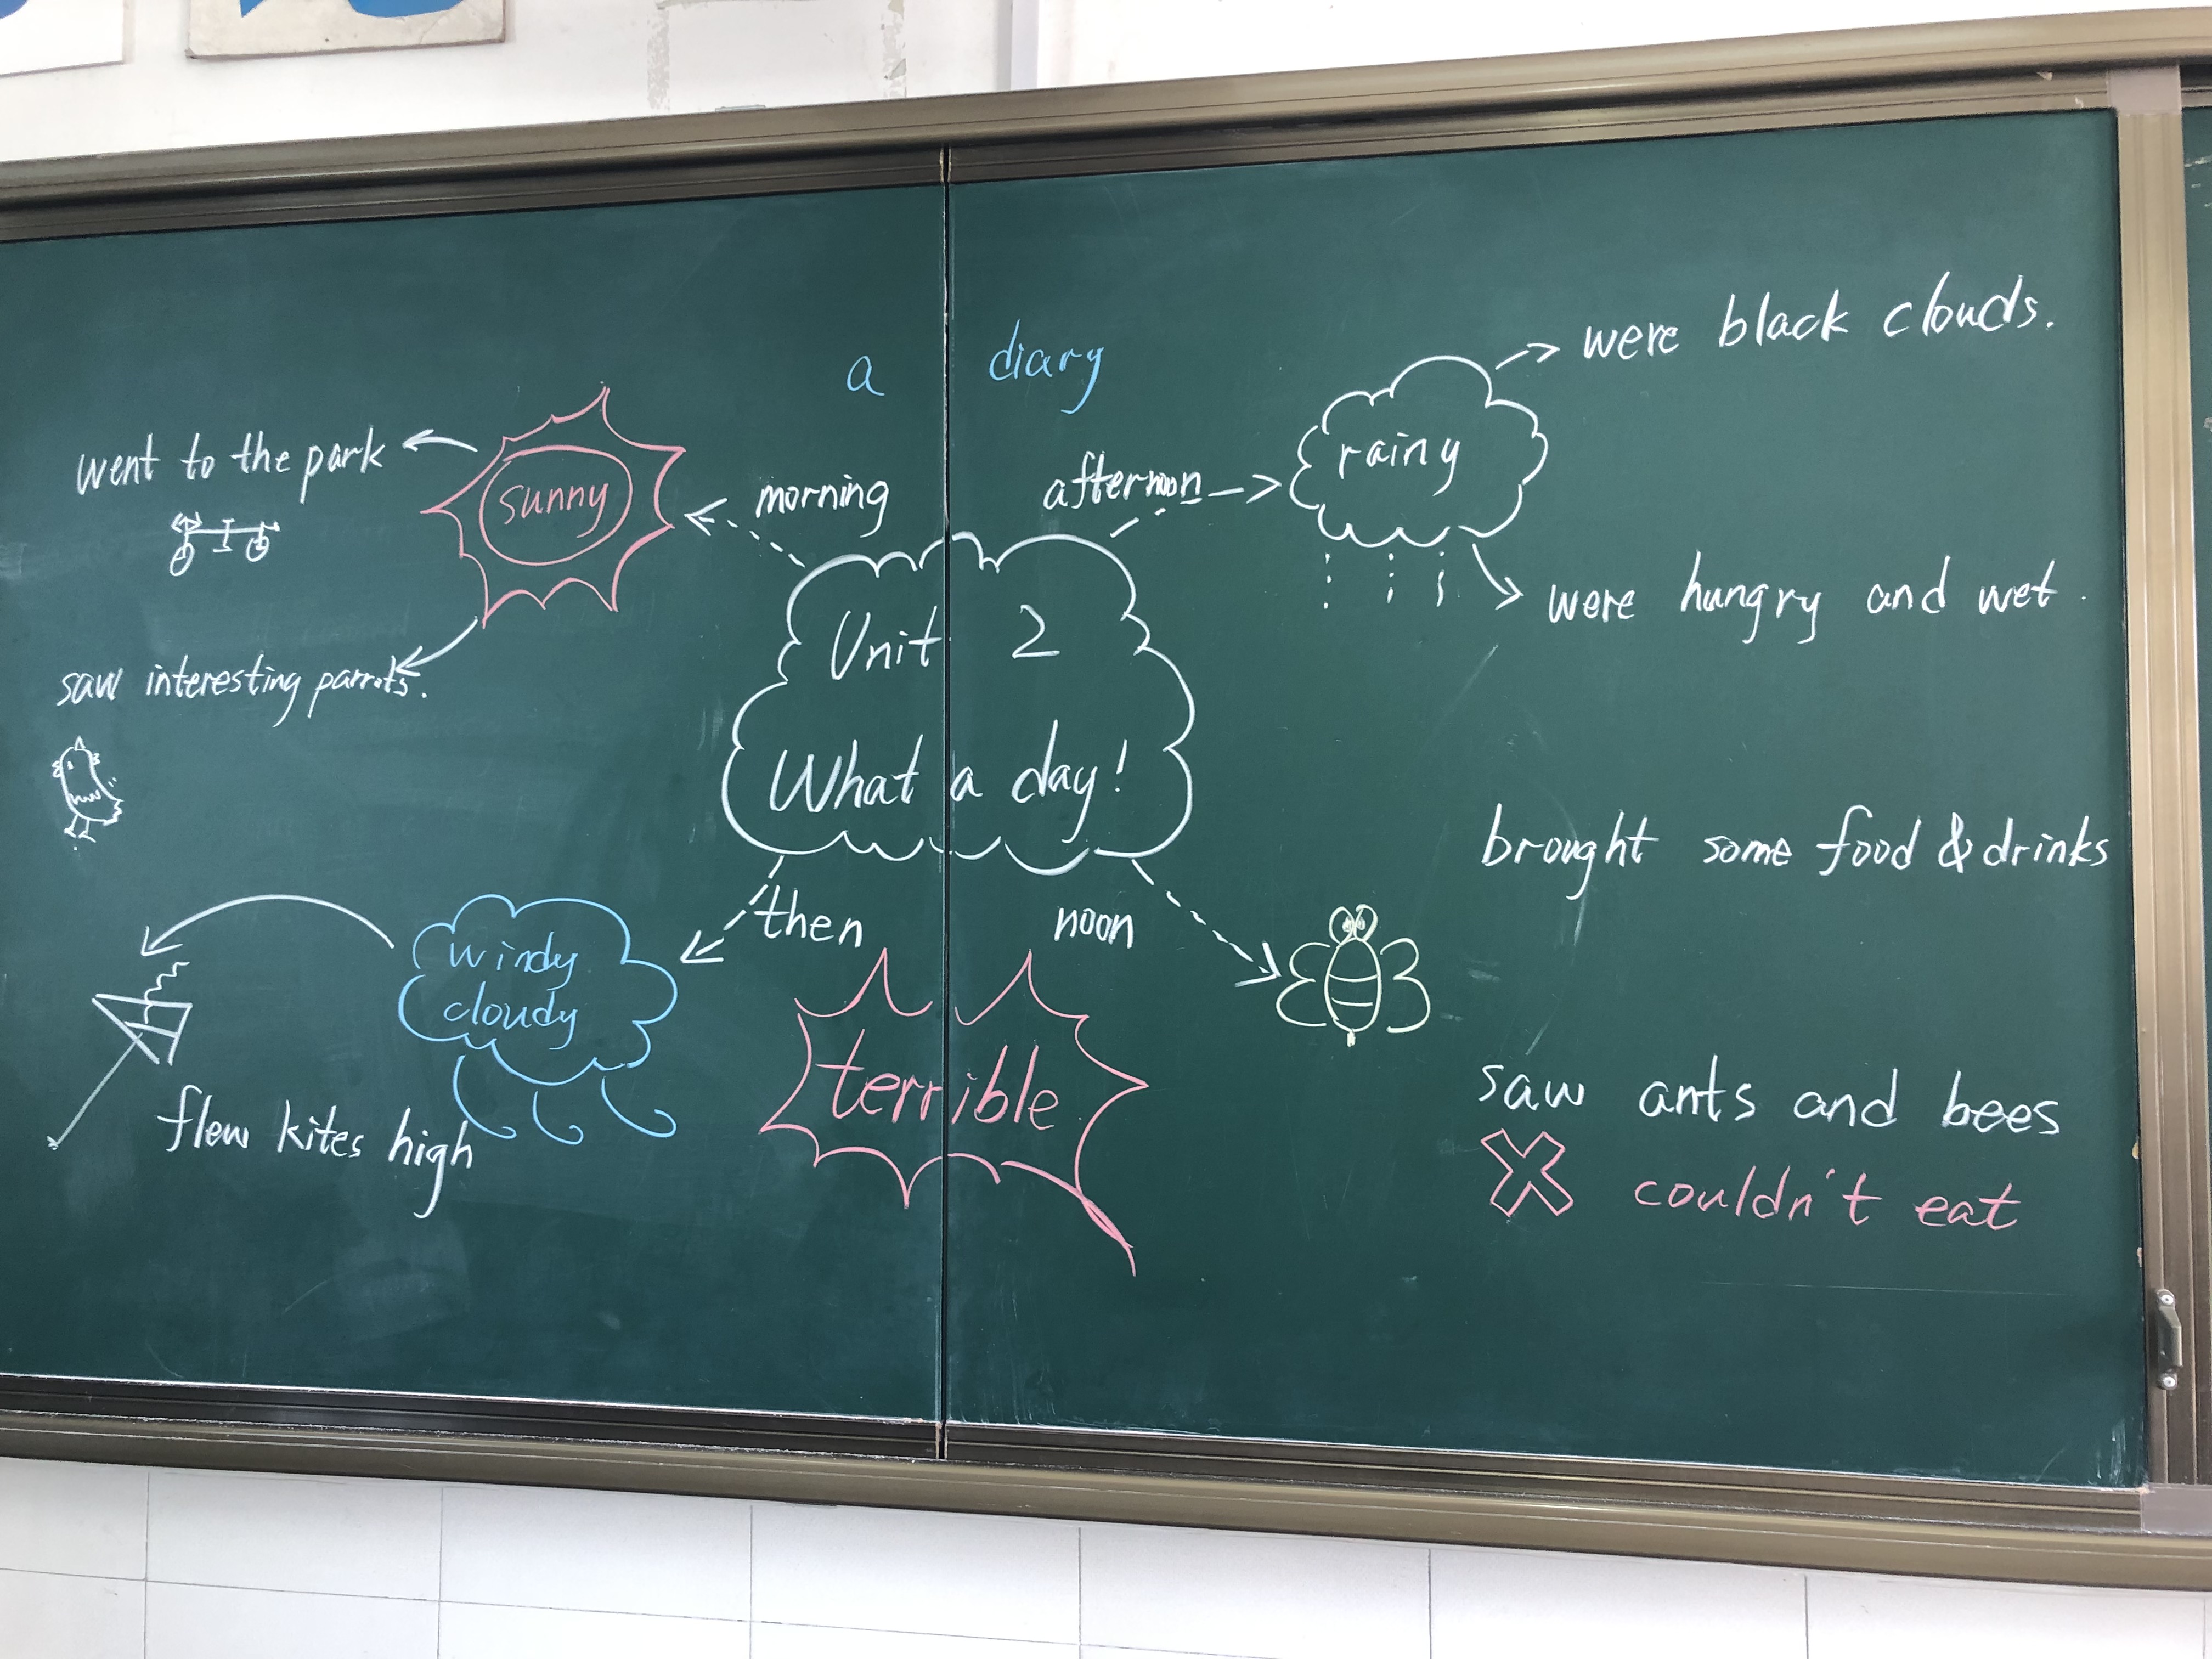 a diary
were black clouds.
went to the park
sunny
morning
afternoon
rainy
were hungry and wet.
Unit 2
saw interesting parrots.
What a day!
brought some food & drinks
then
noon
windy
cloudy
terrible
flew kites high
saw ants and bees
couldn't eat